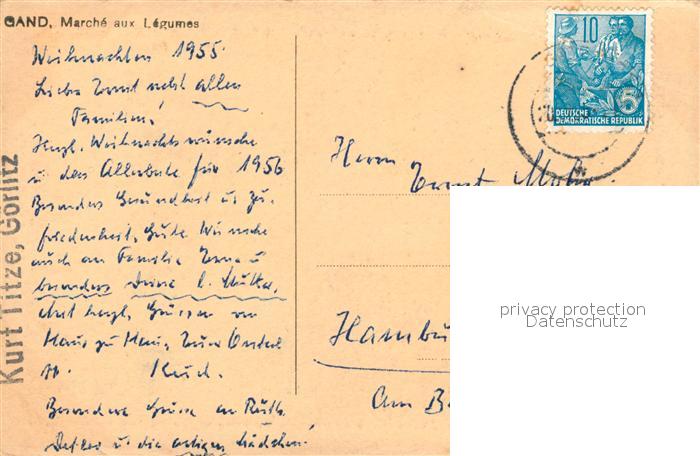 GAND, Marché aux Légumes
Weihnachten 1955.
Lieber Ernst nebst allen
Familien!
Herzl. Weihnachtswünsche
u. das Allerbeste für 1956
Besonders Gesundheit u. Zu-
friedenheit, Gute Wünsche
auch an Familie Erna u
besonders Deine l. Mutter,
Mit herzl. Grüssen von
Haus zu Haus, Euer Onkel
Kurt.
Besondere Grüsse an Ruth
Detlev u. die artigen Mädchen!
Kurt Titze, Görlitz
10
DEUTSCHE
DEMOKRATISCHE REPUBLIK
5
Herrn
Ernst
Hambu
Am B
privacy protection
Datenschutz